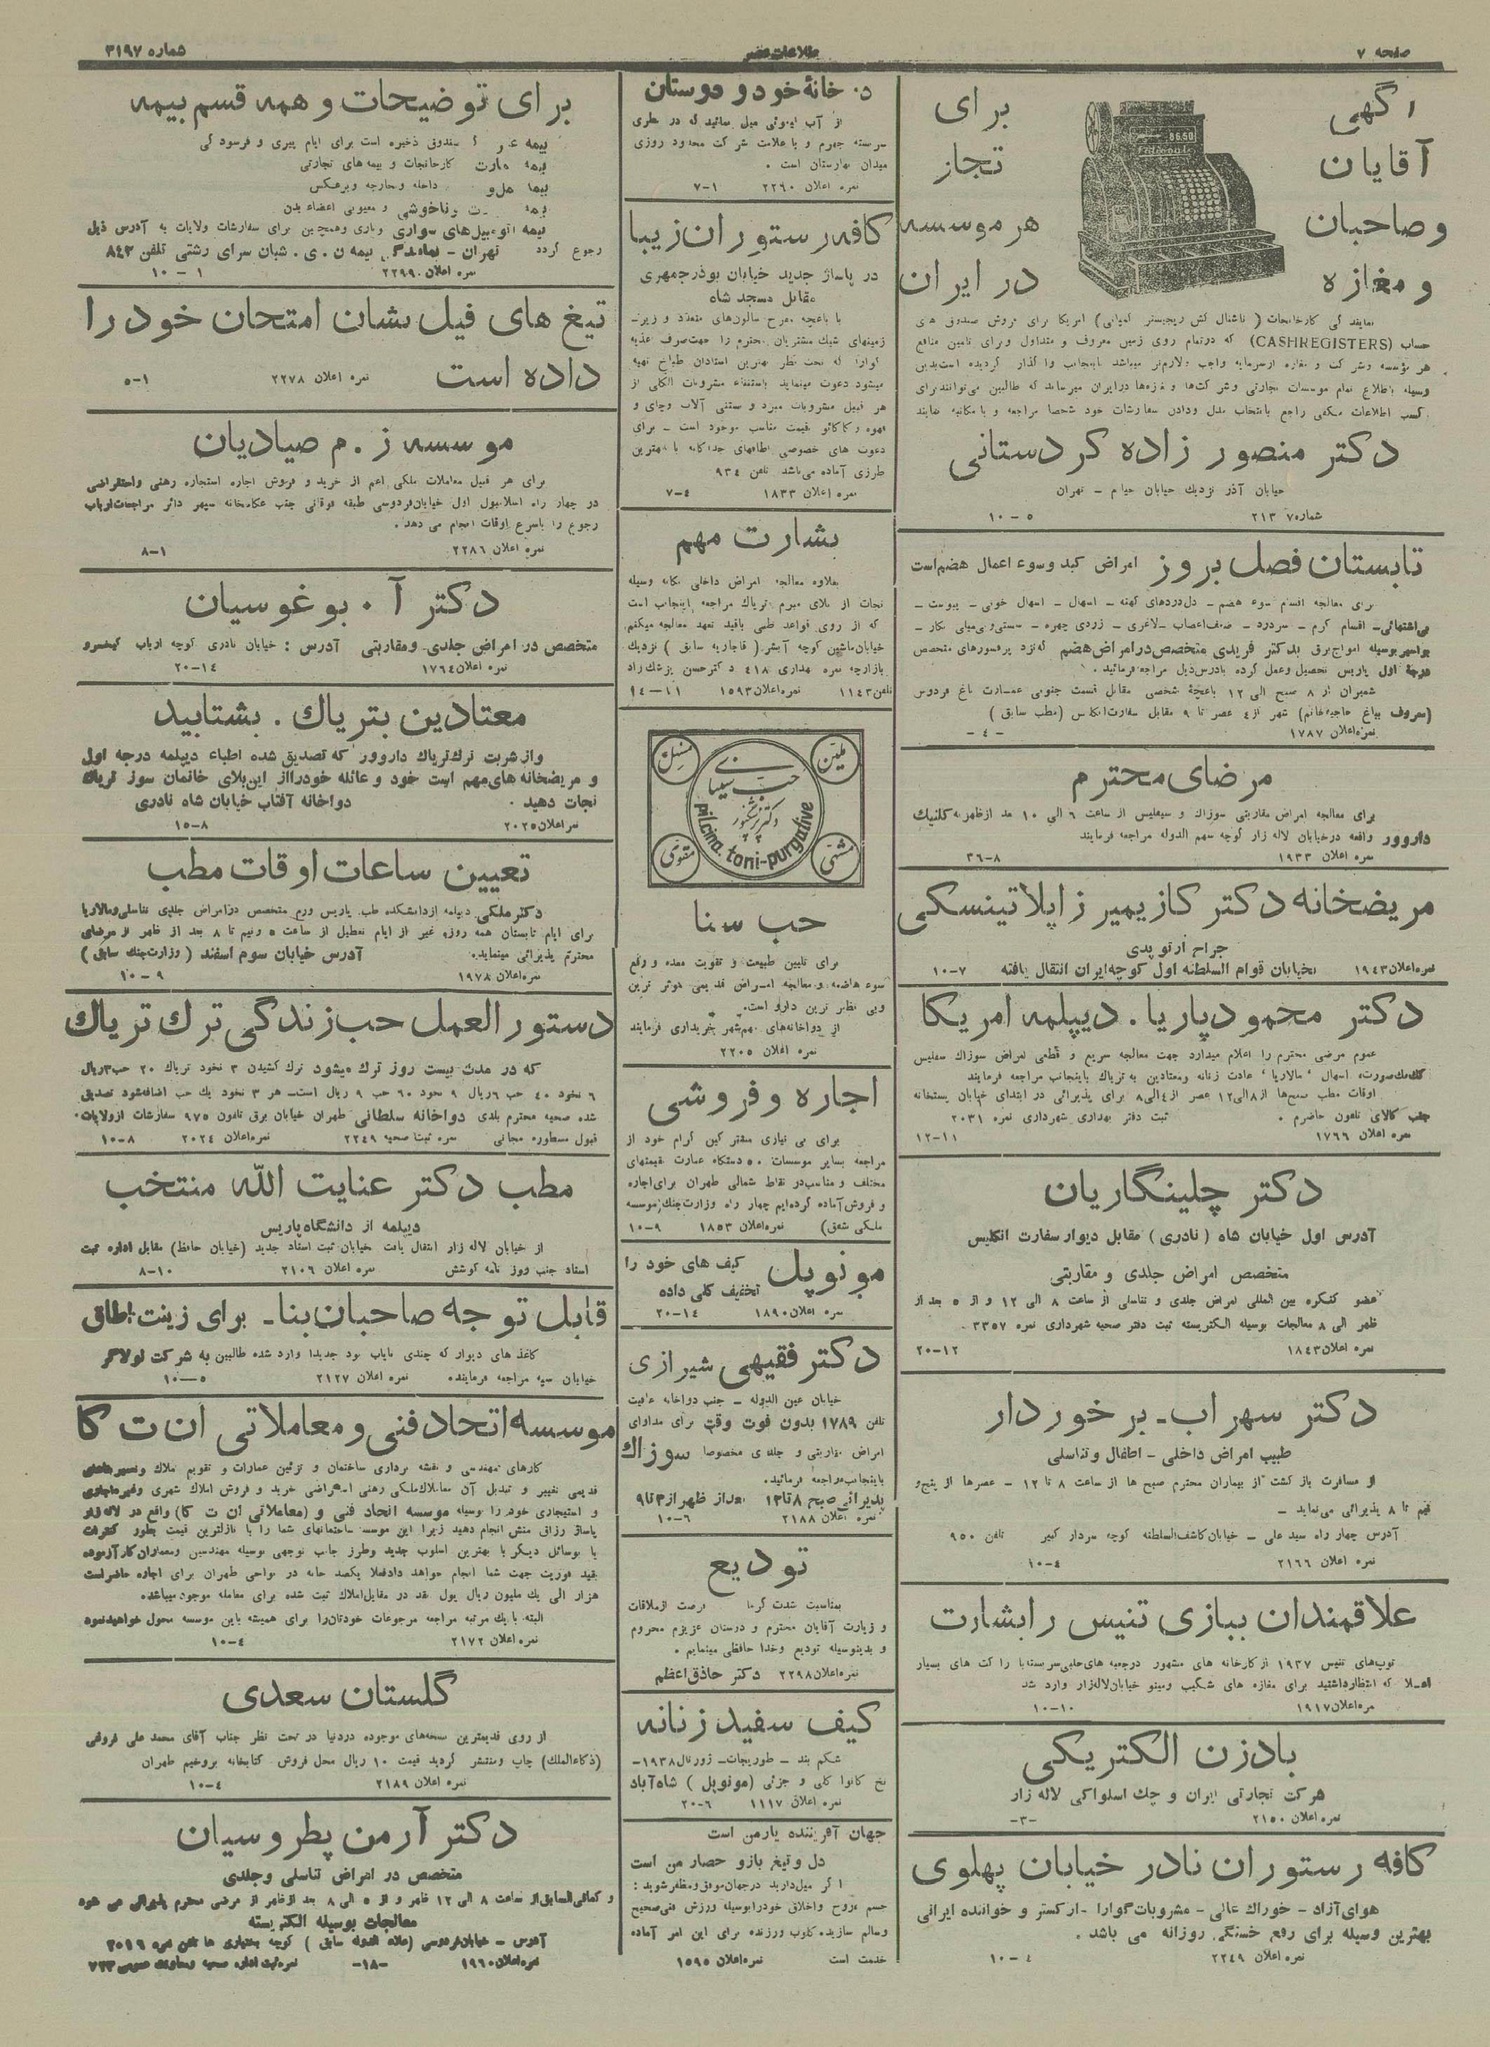 صفحه ۷
اطلاعات عصر
شماره ۳۱۹۷
آگهی
آقایان
و صاحبان
و مغازه
برای
تجار
هر موسسه
در ایران
حساب (CASHREGISTERS) که در تمام روی زمین معروف و متداول و برای تامین منافع
دکتر منصور زاده کردستانی
خیابان آذر نزدیک خیابان خیام - تهران
شماره ۲۱۳۷ ۵ - ۱۰
تابستان فصل بروز امراض کبد و سوء اعمال هضم است
برای معالجه اقسام سوء هضم - دل‌دردهای کهنه - اسهال - اسهال خونی - یبوست -
بی‌اشتهائی - اقسام کرم - سردرد - ضعف اعصاب - لاغری - زردی چهره - سستی و بی‌میلی بکار -
بواسیر بوسیله امواج برق بدکتر فریدی متخصص در امراض هضم که نزد پرفسورهای متخصص
درجه اول پاریس تحصیل و عمل کرده بادرس ذیل مراجعه فرمائید.
شمیران از ۸ صبح الی ۱۲ باغچه شخصی مقابل قسمت جنوبی عمارت باغ فردوس
(معروف بباغ حاجیه خانم) شهر از ۴ عصر تا ۹ مقابل سفارت انگلیس (مطب سابق)
نمره اعلان ۱۷۸۷ - ۴ -
مرضای محترم
برای معالجه امراض مقاربتی سوزاک و سیفلیس از ساعت ۶ الی ۱۰ بعد از ظهر به کلنیک
داروور واقعه در خیابان لاله زار کوچه سهم الدوله مراجعه فرمایند
نمره اعلان ۱۹۳۳ ۸-۳۶
مریضخانه دکتر کازیمیر زاپلاتینسکی
جراح ارتوپدی
نمره اعلان ۱۹۴۳ بخیابان قوام السلطنه اول کوچه ایران انتقال یافته ۷-۱۰
دکتر محمود پاریا. دیپلمه امریکا
عموم مرضی محترم را اعلام میدارد جهت معالجه سریع و قطعی امراض سوزاک سفلیس
کک‌مک صورت، اسهال، مالاریا، عادت زنانه و معتادین به تریاک باینجانب مراجعه فرمایند
اوقات مطب صبح‌ها از ۸ الی ۱۲ عصر از ۴ الی ۸ برای پذیرائی در ابتدای خیابان پستخانه
جنب کالای تلفون حاضرم. ثبت دفتر بهداری شهرداری نمره ۲۰۳۱
نمره اعلان ۱۷۶۶ ۱۱-۱۲
دکتر چلینگاریان
آدرس اول خیابان شاه (نادری) مقابل دیوار سفارت انگلیس
متخصص امراض جلدی و مقاربتی
عضو کنگره بین المللی امراض جلدی و تناسلی از ساعت ۸ الی ۱۲ و از ۵ بعد از
ظهر الی ۸ معالجات بوسیله الکتریسته ثبت دفتر صحیه شهرداری نمره ۳۳۵۷.
نمره اعلان ۱۸۴۳ ۱۲-۲۰
دکتر سهراب - برخوردار
طبیب امراض داخلی - اطفال و تناسلی
از مسافرت باز گشت از بیماران محترم صبح ها از ساعت ۸ تا ۱۲ - عصرها از پنج و
نیم تا ۸ پذیرائی می‌نماید -
آدرس چهار راه سید علی - خیابان کاشف السلطنه کوچه سردار کبیر تلفن ۹۵۰
نمره اعلان ۲۱۶۶ ۴-۱۰
علاقمندان ببازی تنیس را بشارت
توپ‌های تنیس ۱۹۳۷ از کارخانه های مشهور در جعبه های حلبی سر بسته با راکت های بسیار
اعلا که انتظار داشتید برای مغازه های شکیب و مینو خیابان لاله‌زار وارد شد
نمره اعلان ۱۹۱۷ ۱۰-۱۰
بادزن الکتریکی
شرکت تجارتی ایران و چک اسلواکی لاله زار
نمره اعلان ۲۱۵۰ -۳-
کافه رستوران نادر خیابان پهلوی
هوای آزاد - خوراک عالی - مشروبات گوارا - ارکستر و خواننده ایرانی
بهترین وسیله برای رفع خستگی روزانه می باشد.
نمره اعلان ۲۲۴۹ ۴ - ۱۰
در خانهٔ خود و دوستان
میدان بهارستان است.
نمره اعلان ۲۲۶۰ ۱-۷
کافه رستوران زیبا
در پاساژ جدید خیابان بوذرجمهری
مقابل مسجد شاه
میشود دعوت مینماید باستثناء مشروبات الکلی از
هر قبیل مشروبات مبرد و بستنی آلات و چای و
قهوه و کاکائو بقیمت مناسب موجود است - برای
دعوت های خصوصی اطاقهای جداگانه با بهترین
طرزی آماده می‌باشد تلفن ۹۳۴
نمره اعلان ۱۸۳۳ ۴-۷
بشارت مهم
بعلاوه معالجه امراض داخلی یگانه وسیله
نجات از بلای مبرم تریاک مراجعه اینجانب است
که از روی قواعد طبی باقید تعهد معالجه میکنم.
خیابان ماشین کوچه آبشر (قاجاریه سابق) نزدیک
بازارچه نمره بهداری ۴۱۸ دکتر حسن پزشک‌راد
تلفن ۱۱۴۳ نمره اعلان ۱۵۹۳ ۱۱-۱۴
ملین
مسهل
مشتهی
مقوی
حب سینای
دکتر
pilcina toni-purgative
حب سنا
برای تلیین طبیعت و تقویت معده و رفع
سوء هاضمه و معالجه امراض قدیمی موثر ترین
و بی نظیر ترین دارو است.
از دواخانه‌های مهم شهر خریداری فرمایند
نمره اعلان ۲۲۰۵
اجاره و فروشی
مراجعه بسایر موسسات. ۵۰ دستگاه عمارت بقیمتهای
مختلف و مناسب در نقاط شمالی طهران برای اجاره
و فروش آماده کرده‌ایم چهار راه وزارت جنگ (موسسه
ملکی شفق) نمره اعلان ۱۸۵۳ ۹-۱۰
مونوپل کیف های خود را
تخفیف کلی داده
نمره اعلان ۱۸۹۰ ۱۴-۲۰
دکتر فقیهی شیرازی
خیابان عین الدوله - جنب دواخانه عافیت
تلفن ۱۷۸۹ بدون فوت وقت برای مداوای
امراض مقاربتی و جلدی مخصوصا سوزاک
باینجانب مراجعه فرمائید.
پذیرائی صبح ۸ تا ۱۲ بعد از ظهر از ۳ تا ۹
نمره اعلان ۲۱۸۸ ۶-۱۰
تودیع
بمناسبت شدت گرما فرصت از ملاقات
و زیارت آقایان محترم و دوستان عزیزم محروم
و بدینوسیله تودیع و خدا حافظی مینمایم.
نمره اعلان ۲۲۹۸ دکتر حاذق اعظم
کیف سفید زنانه
شکم بند - طوریجات - ژورنال ۱۹۳۸ -
نخ کانوا کلی و جزئی (مونوپل) شاه‌آباد
نمره اعلان ۱۱۱۷ ۶-۲۰
جهان آفریننده یار من است
دل و تیغ و بازو حصار من است
اگر میل دارید در جهان موفق و مظفر شوید:
جسم و روح و اخلاق خود را بوسیله ورزش فنی صحیح
و سالم سازید. کلوب ورزنده برای این امر آماده
خدمت است نمره اعلان ۱۵۹۵
برای توضیحات و همه قسم بیمه
صندوق ذخیره است برای ایام پیری و فرسودگی
کارخانجات و بیمه های تجارتی
داخله و خارجه و برعکس
بیمه اتومبیل‌های سواری و باری و همچنین برای سفارشات ولایات به آدرس ذیل
رجوع گردد تهران - نمایندگی بیمه ن. ی. شبان سرای رشتی تلفن ۸۴۳
نمره اعلان ۲۲۹۹ ۱ - ۱۰
تیغ های فیل نشان امتحان خود را
داده است
نمره اعلان ۲۲۷۸ ۱-۵
موسسه ز. م صیادیان
برای هر قبیل معاملات ملکی اعم از خرید و فروش اجاره استجاره رهنی و استقراضی
در چهار راه اسلامبول اول خیابان فردوسی طبقه فوقانی جنب عکاسخانه سپهر دائر مراجعات ارباب
رجوع را باسرع اوقات انجام می دهد.
نمره اعلان ۲۲۸۶ ۱-۸
دکتر آ. بوغوسیان
متخصص در امراض جلدی و مقاربتی آدرس: خیابان نادری کوچه ارباب کیخسرو
نمره اعلان ۱۷۶۴ ۱۴-۲۰
معتادین بتریاک. بشتابید
و از شربت ترک تریاک داروور که تصدیق شده اطباء دیپلمه درجه اول
و مریضخانه های مهم است خود و عائله خود را از این بلای خانمان سوز تریاک
نجات دهید. دواخانه آفتاب خیابان شاه نادری
نمره اعلان ۲۰۲۵ ۸-۱۵
تعیین ساعات اوقات مطب
دکتر ملکی دیپلمه از دانشکده طب پاریس ورم متخصص در امراض جلدی تناسلی و مالاریا
برای ایام تابستان همه روزه غیر از ایام تعطیل از ساعت ۵ و نیم تا ۸ بعد از ظهر از مرضای
محترم پذیرائی مینماید. آدرس خیابان سوم اسفند (وزارت جنگ سابق)
نمره اعلان ۱۹۷۸ ۹ - ۱۰
دستور العمل حب زندگی ترک تریاک
که در مدت بیست روز ترک میشود ترک کشیدن ۳ نخود تریاک ۲۰ حب ۳ ریال
۶ نخود ۴۰ حب ۶ ریال ۹ نخود ۶۰ حب ۹ ریال است - هر ۳ نخود یک حب اضافه شود تصدیق
شده صحیه محترم بلدی دواخانه سلطانی طهران خیابان برق تلفون ۹۷۵ سفارشات از ولایات
قبول مسطوره مجانی نمره ثبت صحیه ۲۲۴۹ نمره اعلان ۲۰۲۴ ۸-۱۰
مطب دکتر عنایت الله منتخب
دیپلمه از دانشگاه پاریس
از خیابان لاله زار انتقال یافت خیابان ثبت اسناد جدید (خیابان حافظ) مقابل اداره ثبت
اسناد جنب روز نامه کوشش نمره اعلان ۲۱۰۶ ۱۰-۸
قابل توجه صاحبان بنا - برای زینت اطاق
کاغذ های دیوار که چندی نایاب بود جدیدا وارد شده طالبین به شرکت لولاگر
خیابان سپه مراجعه فرمایند. نمره اعلان ۲۱۲۷ ۵-۱۰
موسسه اتحاد فنی و معاملاتی ان ت کا
کارهای مهندسی و نقشه برداری ساختمان و تزئین عمارات و تقویم املاک و تعمیر بناهای
قدیمی تغییر و تبدیل آن معاملات ملکی رهنی استقراضی خرید و فروش املاک شهری و غیره اجاری
و استیجاری خود را بوسیله موسسه اتحاد فنی و (معاملاتی ان ت کا) واقع در لاله زار
پاساژ رزاق منش انجام دهید زیرا این موسسه ساختمانهای شما را با نازلترین قیمت بطور کنترات
یا بوسائل دیگر با بهترین اسلوب جدید و طرز جالب توجهی بوسیله مهندسین و معماران کار آزموده
بقید فوریت جهت شما انجام خواهد داد فعلا یکصد خانه در نواحی طهران برای اجاره حاضر است
هزار الی یک ملیون ریال پول نقد در مقابل املاک ثبت شده برای معامله موجود میباشد.
البته با یک مرتبه مراجعه مرجوعات خودتان را برای همیشه باین موسسه محول خواهید نمود
نمره اعلان ۲۱۷۲ ۴-۱۰
گلستان سعدی
از روی قدیمترین نسخه‌های موجوده در دنیا در تحت نظر جناب آقای محمد علی فروغی
(ذکاء الملک) چاپ و منتشر گردید قیمت ۱۰ ریال محل فروش کتابخانه بروخیم طهران
نمره اعلان ۲۱۸۹ ۴-۱۰
دکتر آرمن پطروسیان
متخصص در امراض تناسلی و جلدی
و کمافی السابق از ساعت ۸ الی ۱۲ ظهر و از ۵ الی ۸ بعد از ظهر از مرضی محترم پذیرائی می شود
معالجات بوسیله الکتریسته
آدرس - خیابان فردوسی (علاء الدوله سابق) کوچه بختیاری ها تلفن نمره ۳۰۱۶
نمره اعلان ۱۹۶۰ -۱۸- نمره ثبت اداره صحیه و معاونت عمومی ۷۳۳